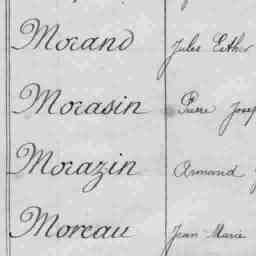 Morand Jules Esther
Morasin Pierre Josep
Morazin Armand J
Moreau Jean Marie